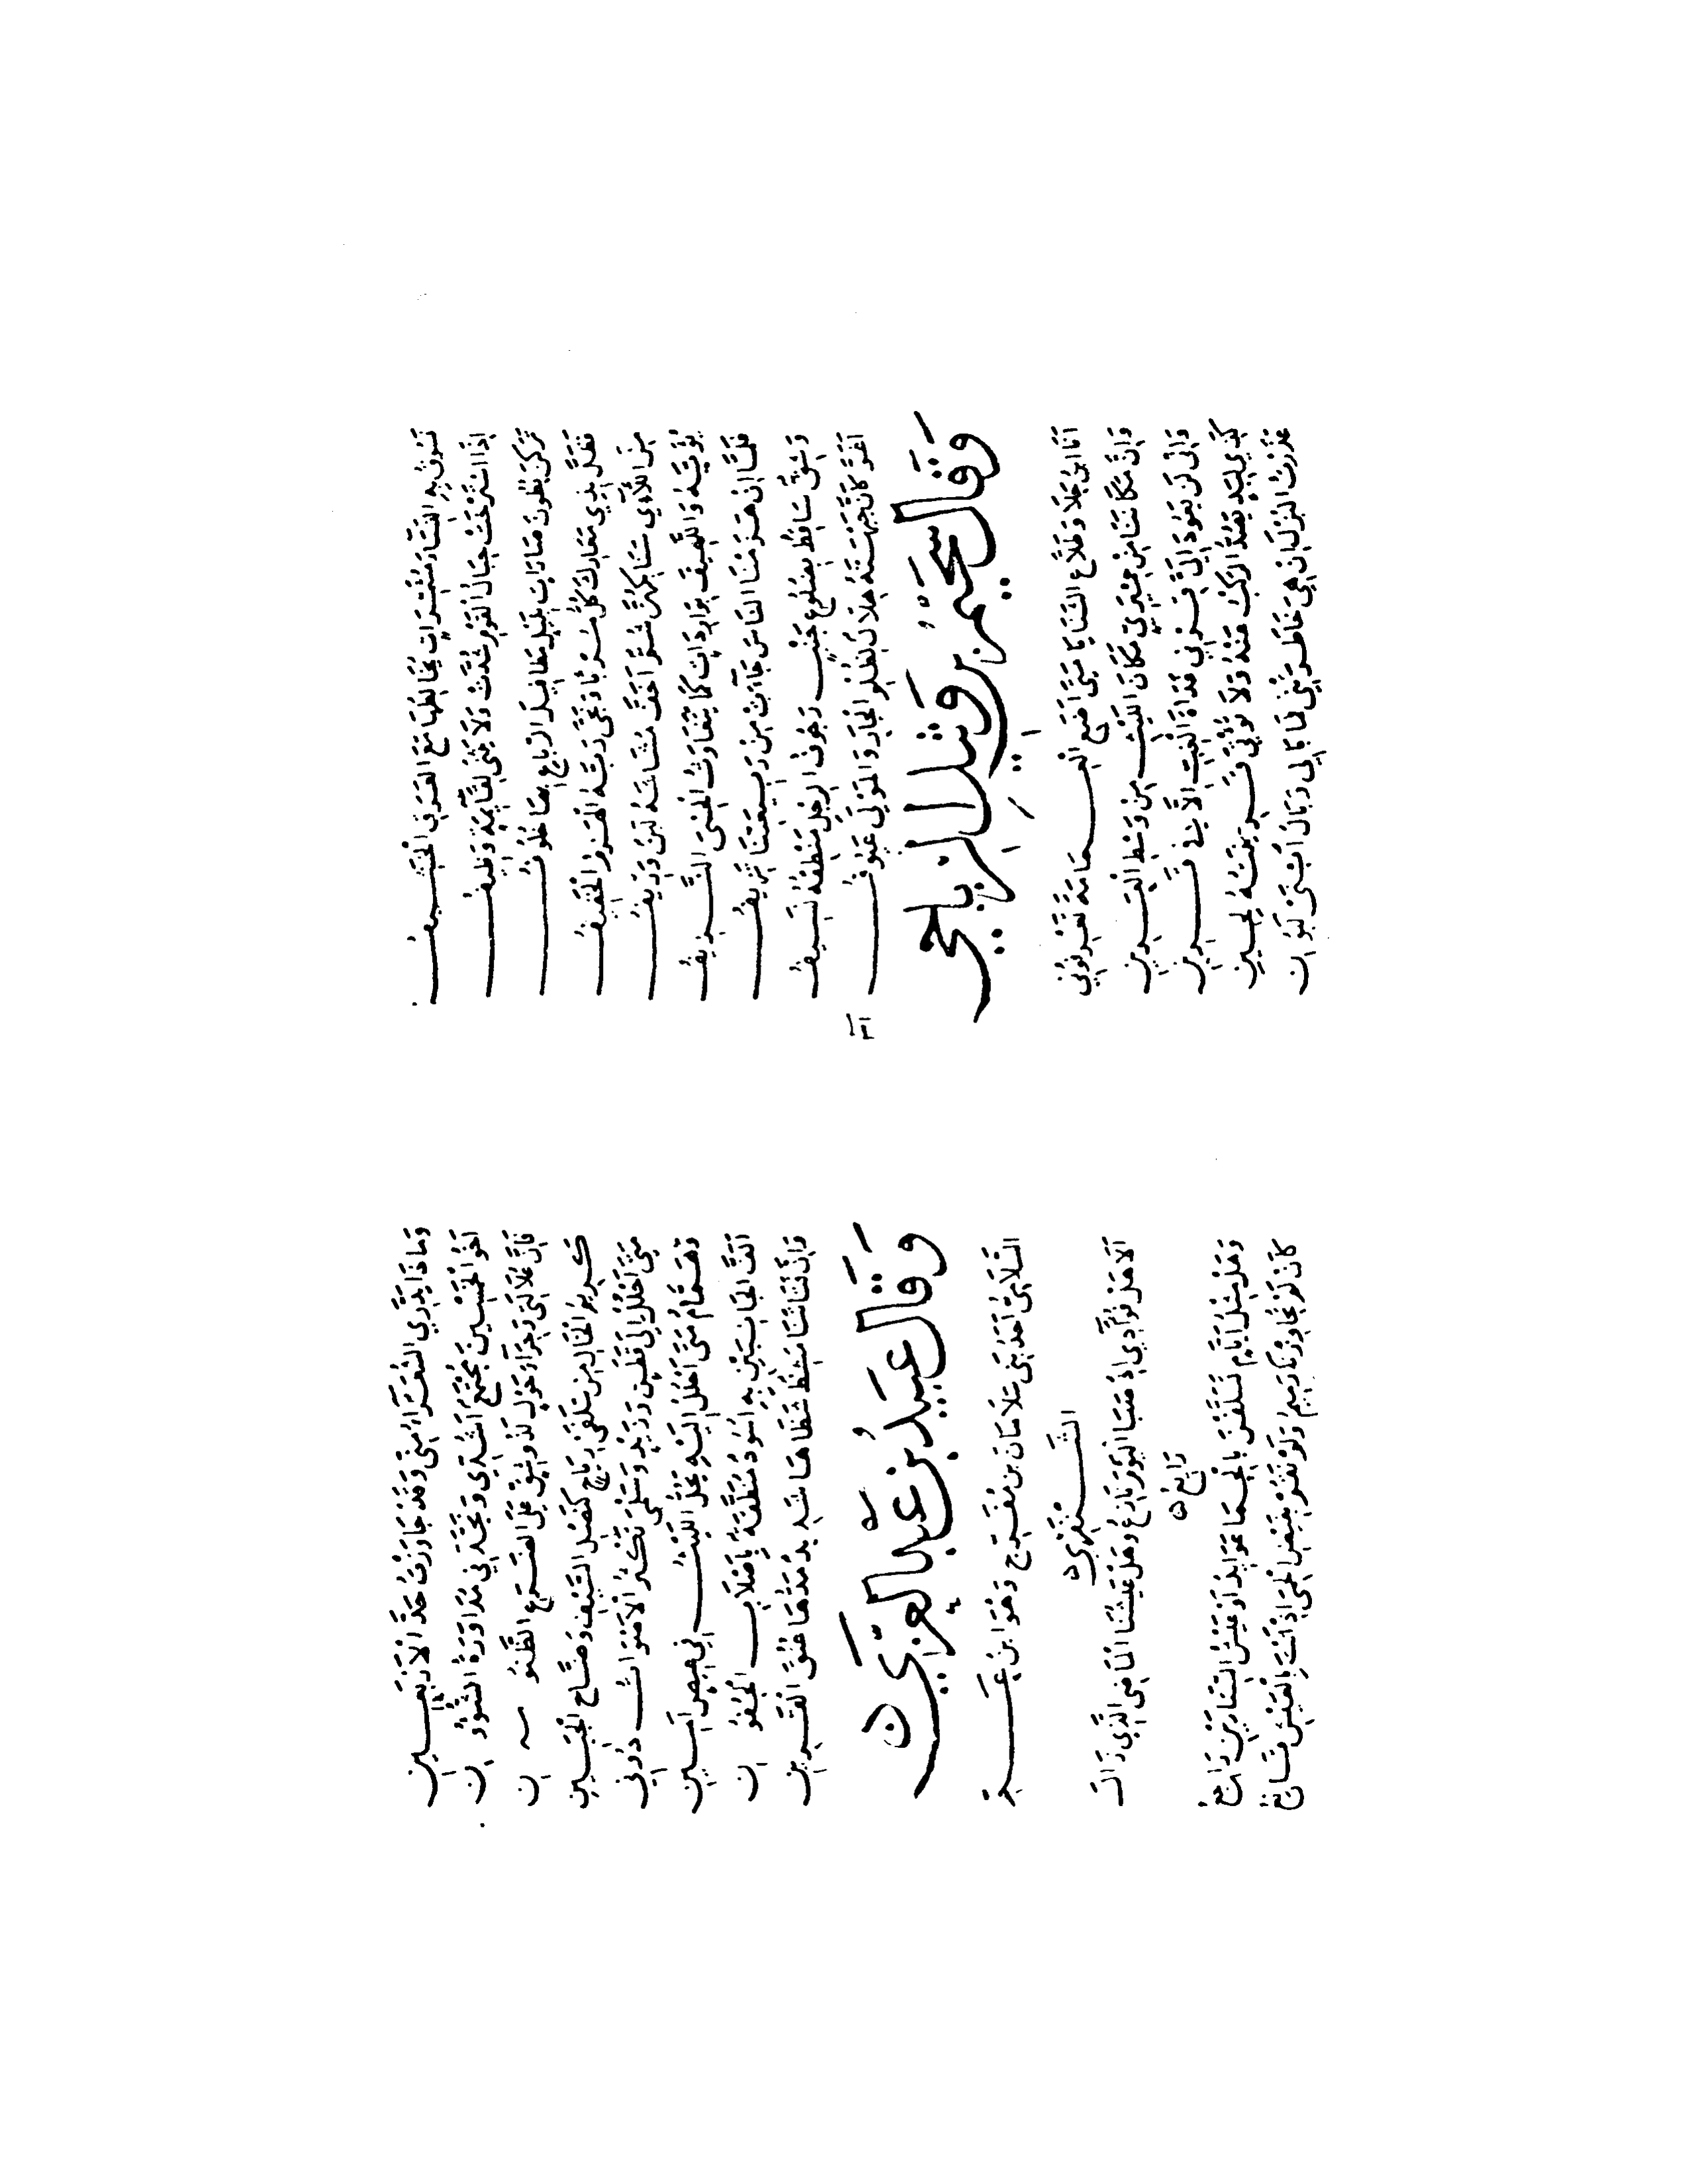 اِذَا اسْتَرْخَتْ حِبَالُ الْقَوْمِ شُدَّتْ وَلَا يُثْنَى لِقَائِمَةٍ وَظِيفُ
تَرَكْنَ بُطُونَ صَارَاتٍ بِلَيْلٍ مَطَافِيلَ الرِّبَاعِ بِهَا خُلُوفُ
فَظَلَّ بِذِي مَعَارِكَ كُلُّ وَنَجَّى رَبَّهُ الْهَزِمُ الْخَفِيفُ
مِنَ اللَّائِي سَنَابِكُهُنَّ شُمٌّ اَخَفَّ مُشَاشَهُ لَبَنٌ وَرِيفُ
وَاللَّهِيفَ بِوَارِدَاتٍ كَمَا يَتَفَاوَتُ الْحِسْيُ النَّزِيفُ
فَلَمَّا اِنْ هَزَمْنَا النَّاسَ جَاءَتْ مِنْ رَبِيعَتِنَا تَزِيفُ
وَشِقٌّ سَاقِطٌ بِضُلُوعِ جَنْبٍ رَجُوفُ الرِّجْلِ مَنْطِقُهُ نَسِيفُ
اَغَرُّ كَاَنَّ جَبْهَتَهُ هِلَالٌ لِظُلْمِ الْجَارِ وَالْمَوْلَى عَيُوفُ
وَقَالَ سُحَيْمُ بْنُ وَثِيلٍ الرِّيَاحِي
اَنَا ابْنُ جَلَا وَطَلَّاعُ الثَّنَايَا مَتَى اَضَعِ الْعِمَامَةَ تَعْرِفُونِي
وَاِنَّ مَكَانَنَا مِنْ حِمْيَرِيٍّ مَكَانَ اللَّيْثِ مِنْ وَسْطِ الْعَرِينِ
وَاِنِّي لَنْ يَعُودَ اِلَيَّ قِرْنِي غَدَاةَ الْغِبِّ اِلَّا فِي قَرِينِ
كَذِي لِبَدٍ يَصُدُّ الرَّكْبَ عَنْهُ وَلَا تُؤْتَى فَرِيسَتُهُ لِحِينِ
عَذَرْتُ الْبُزْلَ اِنْ هِيَ خَاطَرَتْنِي فَمَا بَالِي وَبَالُ ابْنَيْ لَبُونِ
وَمَاذَا يَدَّرِي الشُّعَرَاءُ مِنِّي وَقَدْ جَاوَزْتُ حَدَّ الْاَرْبَعِينِ
اَخُو الْخَمْسِينَ مُجْتَمِعٌ اَشُدِّي وَنَجَّذَنِي مُدَاوَرَةُ الشُّؤُونِ
فَاِنَّ عُلَالَتِي وَجِرَاءَ حَوْلِي لَذُو شِقٍّ عَلَى الضَّرَعِ الظَّنُونِ
كَرِيمُ الْخَالِ مِنْ سَلَفَيْ رِيَاحٍ كَنَصْلِ السَّيْفِ وَضَّاحُ الْجَبِينِ
مَتَى اَحْلُلْ اِلَى قَطَنٍ وَزَيْدٍ وَسَلْمَى تَكْثُرُ الْاَصْوَاتُ دُونِي
وَهَمَّامٌ مَتَى اَحْلُلْ اِلَيْهِ يَحُلُّ اللَّيْثُ فِي عِيصٍ اَمِينِ
اَلَفَّ الْجَانِبَيْنِ بِهِ اُسُودٌ مُنَطَّقَةٌ بِاَصْلَابِ الْجُفُونِ
وَاِنَّ قَنَاتَنَا مَشِظٌ شَظَاهَا شَدِيدٌ مَدُّهَا عُنُقَ الْقَرِينِ
وَقَالَ عُبَيْدُ بْنُ عَبْدِ الْعُزَّى
السَّلَامِيُّ اَحَدُ بَنِي سَلَامَانَ بْنِ مُفْرِجٍ وَهُوَ ابْنُ عَمِّ
الشَّنْفَرَى
اَلَا هَلْ فُؤَادِي اِذْ صَبَا الْيَوْمَ نَازِعُ وَهَلْ عَيْشُنَا الْمَاضِي الَّذِي زَالَ
رَاجِعُ
وَهَلْ مِثْلُ اَيَّامٍ تَسَلَّفْنَ بِالْحِمَى عَوَائِدُ اَوْ عَيْشُ السِّتَارَيْنِ وَاقِعُ
كَاَنْ لَمْ تُجَاوِرْنَا رَمِيمُ وَلَمْ نَقُمْ بِفَيْضِ الْحِمَى اِذْ اَنْتَ بِالْعَيْشِ قَانِعُ